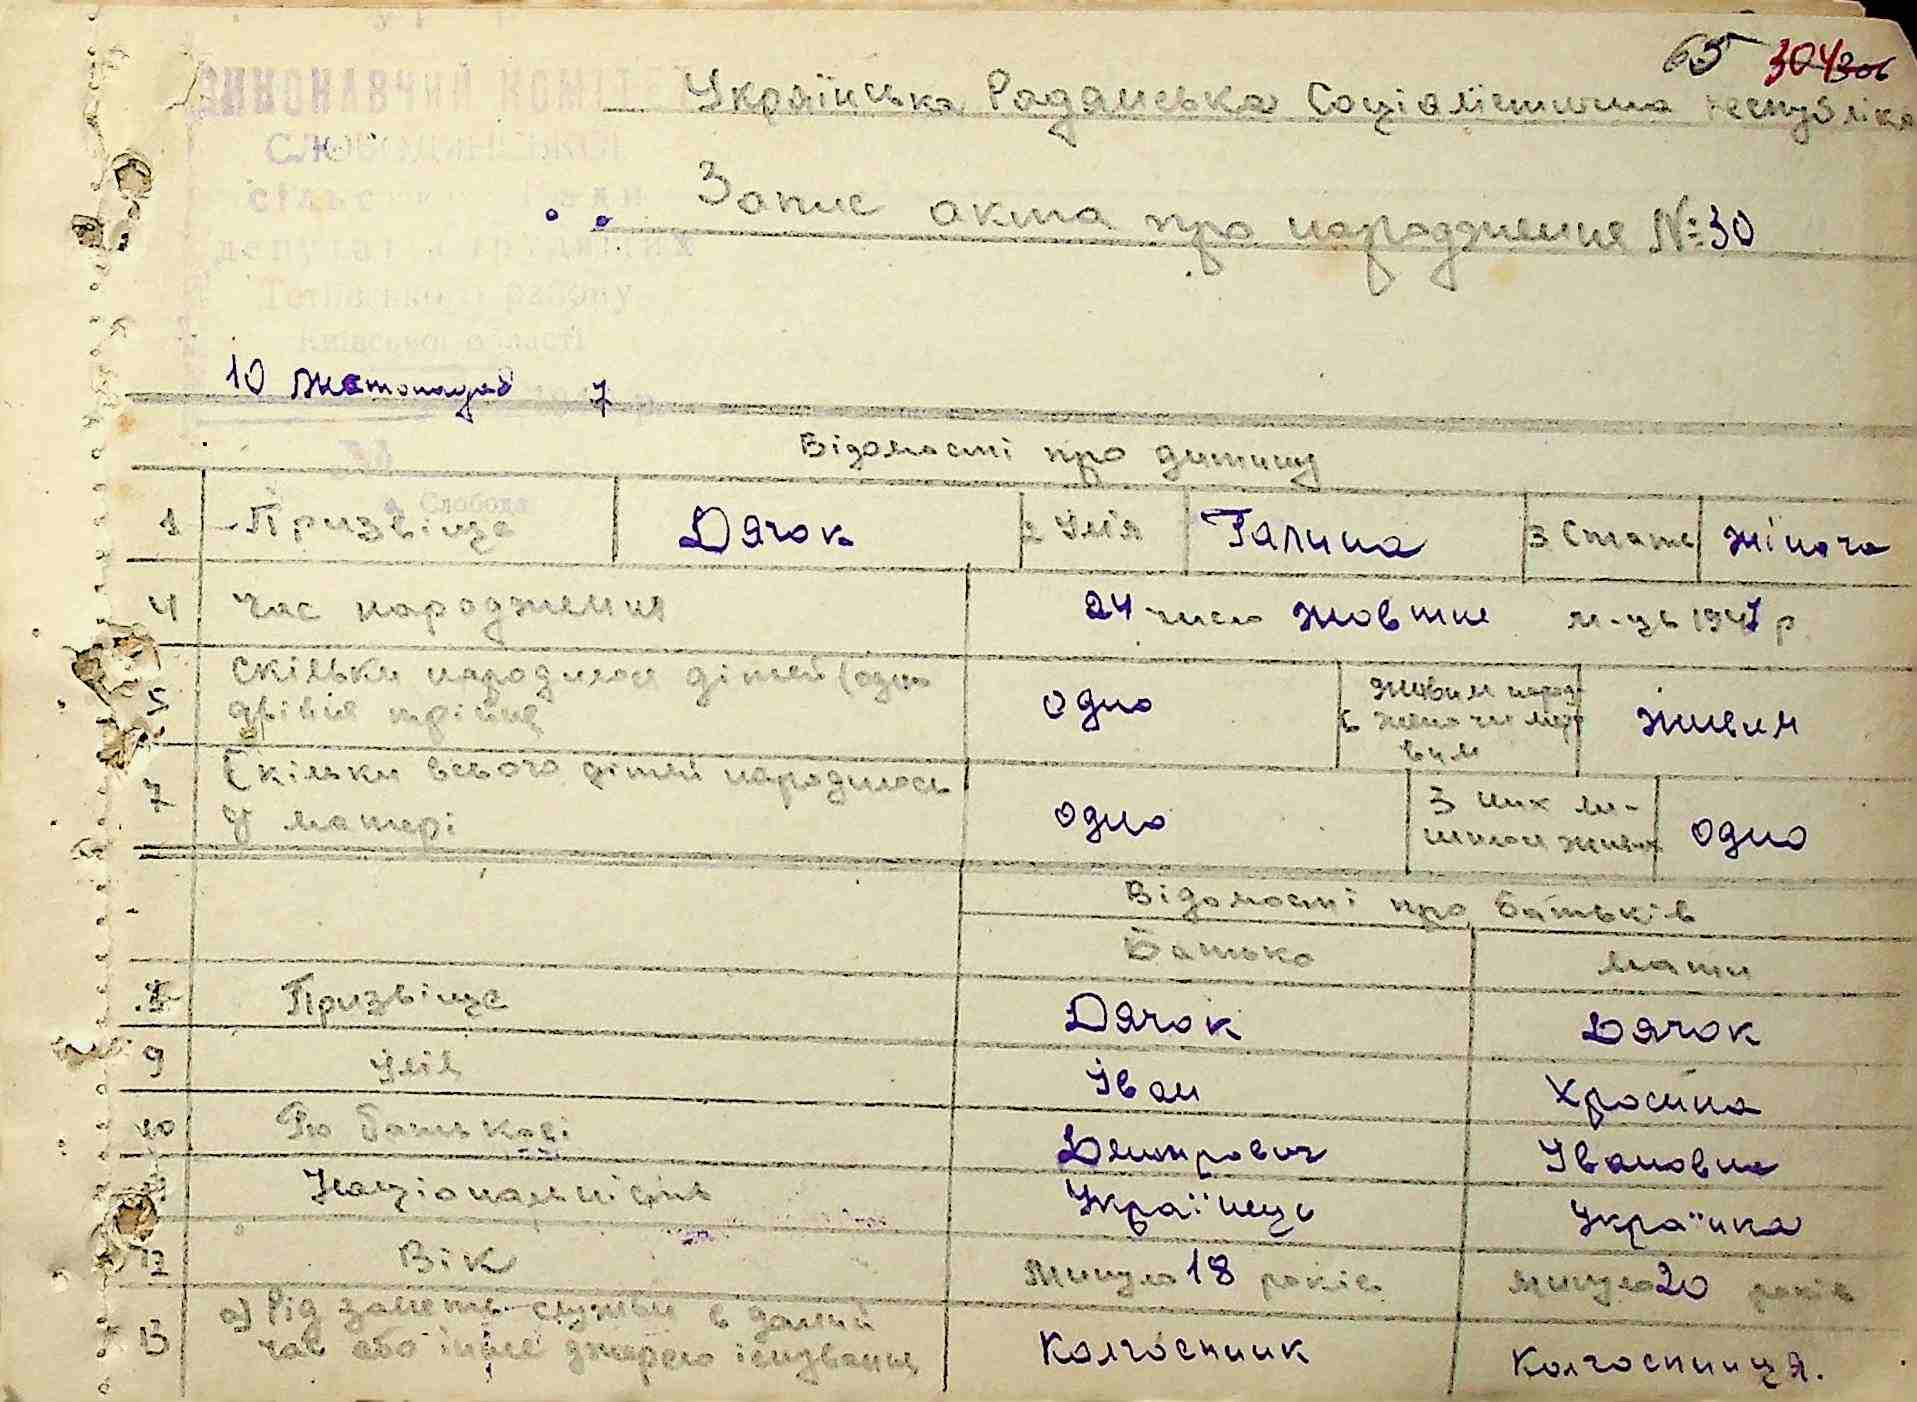 65 304 306
Українська Радянська Соціалістична Республіка
ВИКОНАВЧИЙ КОМІТЕТ
СЛОБОДЯНСЬКОЇ
сільської Ради
депутатів трудящих
Тетіївського району
Київської області
Слобода
Запис акта про народження № 30
10 листопада 7
Відомості про дитину
1 Призвіще Дячок 2 Імʼя Галина 3 Стать жіноча
4 Час народження 24 число жовтня м-ць 1947 р.
5 Скільки народилося дітей (одно двійня трійня одно 6 живим народжено чи мертвим живим
7 Скільки всього дітей народилось у матері одно З них лишилося живих одно
Відомості про батьків
Батько мати
8 Призвіще Дячок Дячок
9 Імʼя Іван Хросина
10 По батькові Дмитрович Івановна
11 Національність Українець Українка
12 Вік минуло 18 років минуло 20 років
13 а) Рід занять служби в даний
час або інше джерело існування Колгоспник Колгоспниця.